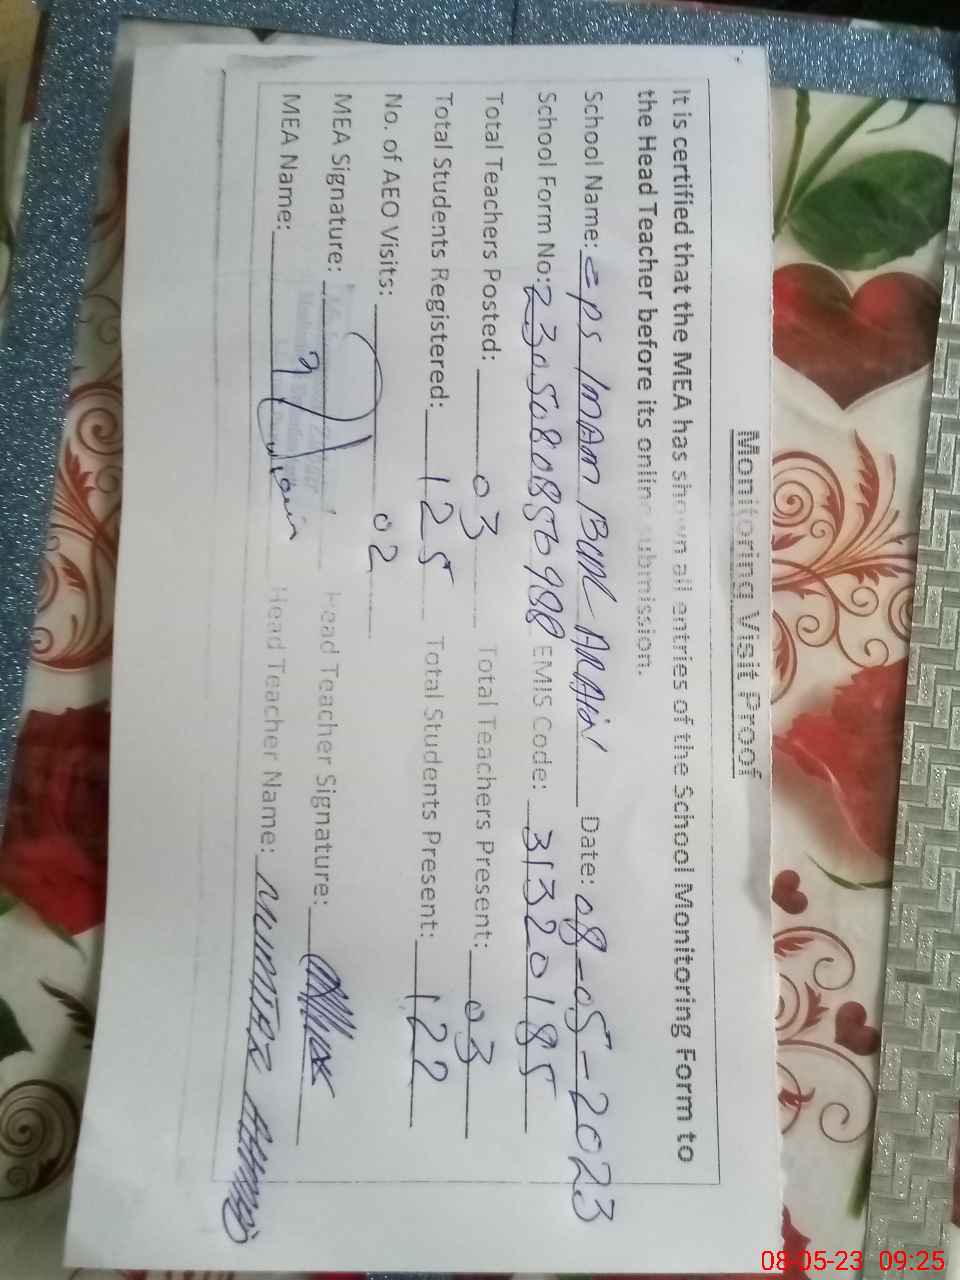 Monitoring Visit Proof
It is certified that the MEA has shown all entries of the School Monitoring Form to
the Head Teacher before its online submission.
School Name: GPS IMAM BUX ARAIN Date: 08-05-2023
School Form No: 230508085698 EMIS Code: 31320185
Total Teachers Posted: 03 Total Teachers Present: 03
Total Students Registered: 125 Total Students Present: 122
No. of AEO Visits: 02
MEA Signature: Head Teacher Signature:
MEA Name: Head Teacher Name: MUNEER AHMED
08-05-23 09:25